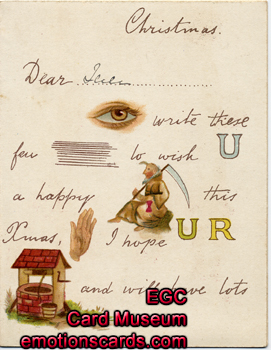 Christmas.
Dear
write these
few to wish U
a happy this
Xmas, I hope U R
and will have lots
EGC
Card Museum
emotionscards.com